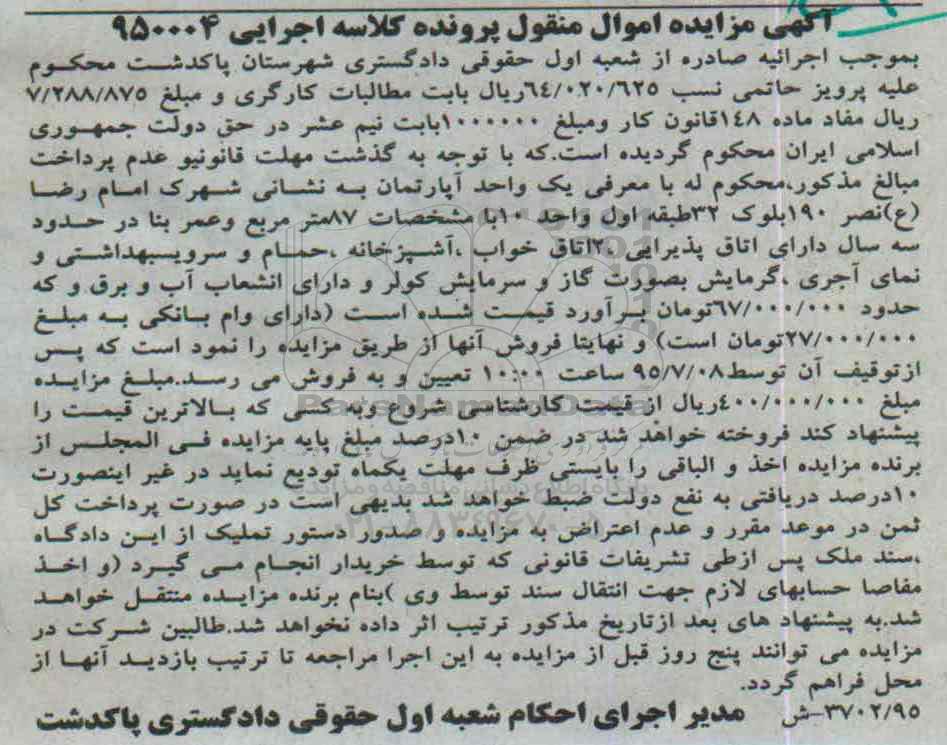 آگهی مزایده اموال منقول پرونده کلاسه اجرایی ۹۵۰۰۰۴
بموجب اجرائیه صادره از شعبه اول حقوقی دادگستری شهرستان پاکدشت محکوم
علیه پرویز حاتمی نسب ۶۴/۰۲۰/۶۲۵ریال بابت مطالبات کارگری و مبلغ ۷/۲۸۸/۸۷۵
ریال مفاد ماده ۱۴۸قانون کار ومبلغ ۱۰۰۰۰۰۰بابت نیم عشر در حق دولت جمهوری
اسلامی ایران محکوم گردیده است.که با توجه به گذشت مهلت قانونیو عدم پرداخت
مبالغ مذکور،محکوم له با معرفی یک واحد آپارتمان به نشانی شهرک امام رضا
(ع)نصر ۱۹۰بلوک ۳۲طبقه اول واحد ۱۰با مشخصات ۸۷متر مربع وعمر بنا در حدود
سه سال دارای اتاق پذیرایی ،۲اتاق خواب ،آشپزخانه ،حمام و سرویسبهداشتی و
نمای آجری ،گرمایش بصورت گاز و سرمایش کولر و دارای انشعاب آب و برق و که
حدود ۶۷/۰۰۰/۰۰۰تومان برآورد قیمت شده است (دارای وام بانکی به مبلغ
۲۷/۰۰۰/۰۰۰تومان است) و نهایتا فروش آنها از طریق مزایده را نمود است که پس
ازتوقیف آن توسط۹۵/۷/۰۸ ساعت ۱۰:۰۰ تعیین و به فروش می رسد.مبلغ مزایده
مبلغ ۴۰۰/۰۰۰/۰۰۰ریال از قیمت کارشناسی شروع وبه کسی که بالاترین قیمت را
پیشنهاد کند فروخته خواهد شد در ضمن ۱۰درصد مبلغ پایه مزایده فی المجلس از
برنده مزایده اخذ و الباقی را بایستی ظرف مهلت یکماه تودیع نماید در غیر اینصورت
۱۰درصد دریافتی به نفع دولت ضبط خواهد شد بدیهی است در صورت پرداخت کل
ثمن در موعد مقرر و عدم اعتراض به مزایده و صدور دستور تملیک از این دادگاه
،سند ملک پس ازطی تشریفات قانونی که توسط خریدار انجام می گیرد (و اخذ
مفاصا حسابهای لازم جهت انتقال سند توسط وی )بنام برنده مزایده منتقل خواهد
شد.به پیشنهاد های بعد ازتاریخ مذکور ترتیب اثر داده نخواهد شد.طالبین شرکت در
مزایده می توانند پنج روز قبل از مزایده به این اجرا مراجعه تا ترتیب بازدید آنها از
محل فراهم گردد.
۳۷۰۲/۹۵-ش مدیر اجرای احکام شعبه اول حقوقی دادگستری پاکدشت